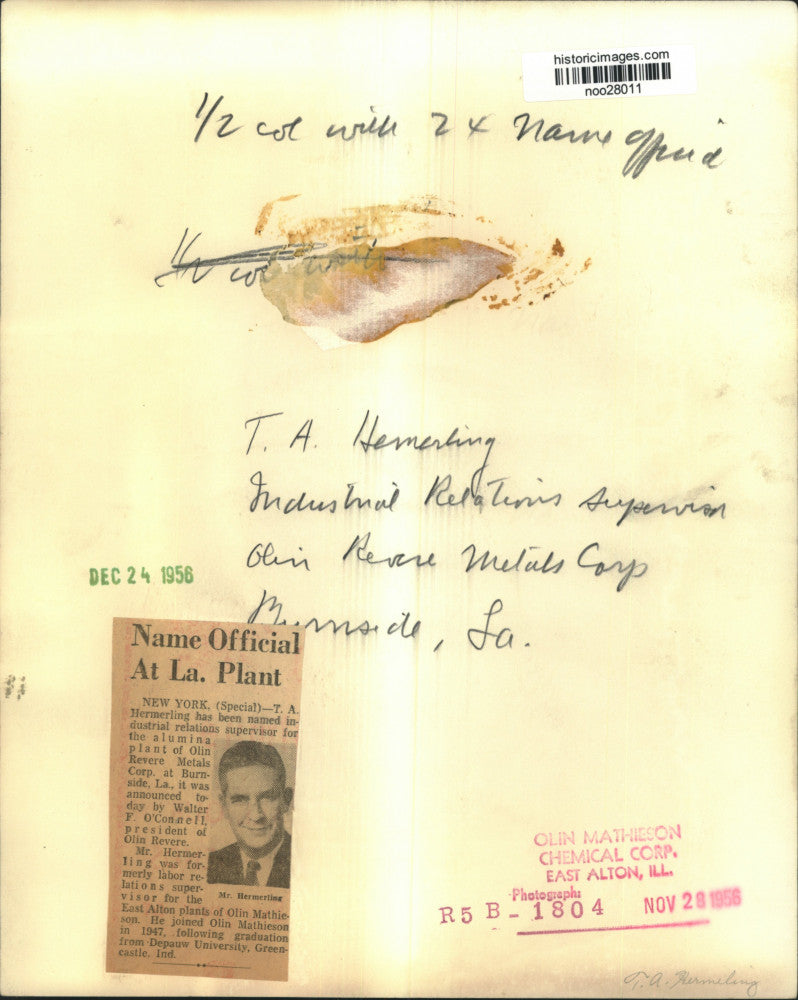 historicimages.com
noo28011
1/2 col with 2 x Name offici'd
1/2 col with
T. A. Hemerling
Industrial Relations Supervisor
Olin Revere Metals Corp
Burnside, La.
DEC 24 1956
Name Official
At La. Plant
NEW YORK, (Special)—T. A.
Hermerling has been named in-
dustrial relations supervisor for
the alumina
plant of Olin
Revere Metals
Corp. at Burn-
side, La., it was
announced to-
day by Walter
F. O'Connell,
president of
Olin Revere.
Mr. Hermer-
ling was for-
merly labor re-
lations super-
visor for the
East Alton plants of Olin Mathie-
son. He joined Olin Mathieson
in 1947, following graduation
from Depauw University, Green-
castle, Ind.
Mr. Hermerling
OLIN MATHIESON
CHEMICAL CORP.
EAST ALTON, ILL.
Photograph:
R5 B-1804 NOV 28 1956
T. A. Hermeling